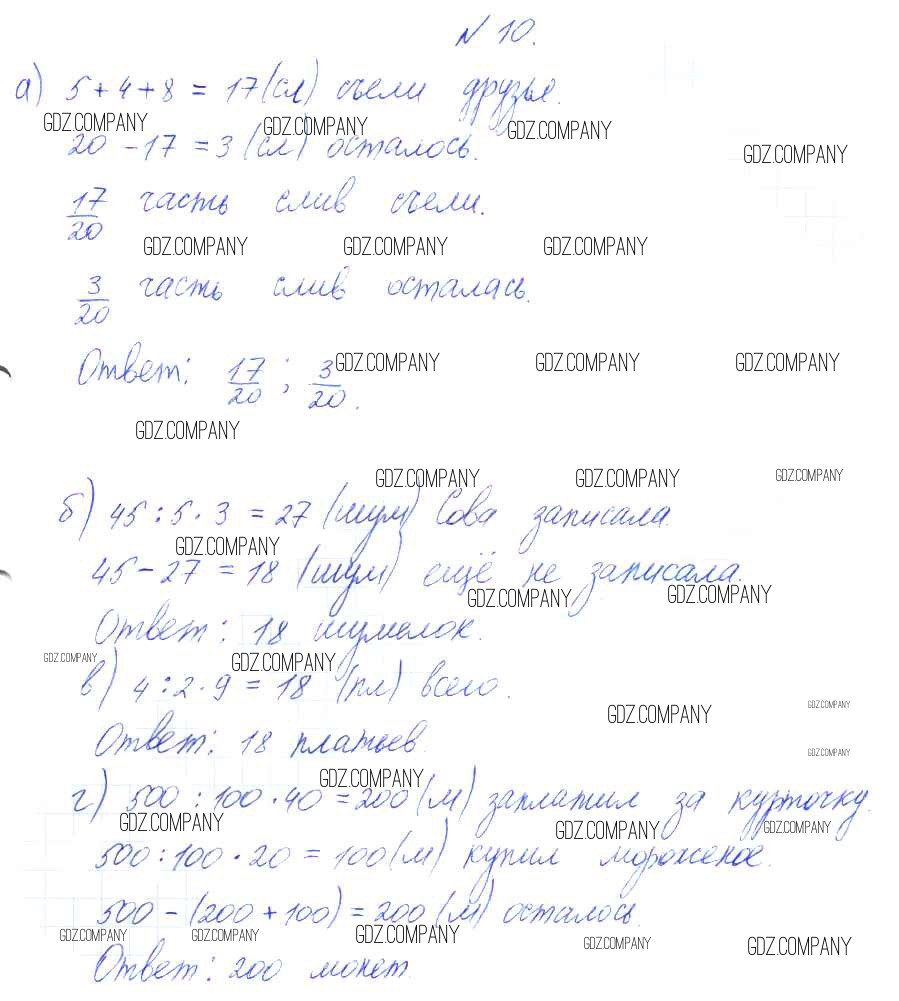 № 10.
а) 5 + 4 + 8 = 17 (сл) съели друзья.
GDZ.COMPANY GDZ.COMPANY GDZ.COMPANY
20 - 17 = 3 (сл) осталось.
GDZ.COMPANY
17/20 часть слив съели.
GDZ.COMPANY GDZ.COMPANY GDZ.COMPANY
3/20 часть слив осталась.
Ответ: 17/20 ; 3/20.
GDZ.COMPANY GDZ.COMPANY GDZ.COMPANY
GDZ.COMPANY
GDZ.COMPANY GDZ.COMPANY GDZ.COMPANY
б) 45 : 5 · 3 = 27 (шум) Сова записала.
GDZ.COMPANY
45 - 27 = 18 (шум) ещё не записала.
GDZ.COMPANY GDZ.COMPANY
Ответ: 18 шумелок.
GDZ.COMPANY GDZ.COMPANY
в) 4 : 2 · 9 = 18 (пл) всего.
GDZ.COMPANY GDZ.COMPANY
Ответ: 18 платьев.
GDZ.COMPANY
GDZ.COMPANY
г) 500 : 100 · 40 = 200 (м) заплатил за курточку.
GDZ.COMPANY GDZ.COMPANY GDZ.COMPANY
500 : 100 · 20 = 100 (м) купил мороженое.
500 - (200 + 100) = 200 (м) осталось.
GDZ.COMPANY GDZ.COMPANY GDZ.COMPANY GDZ.COMPANY GDZ.COMPANY
Ответ: 200 монет.